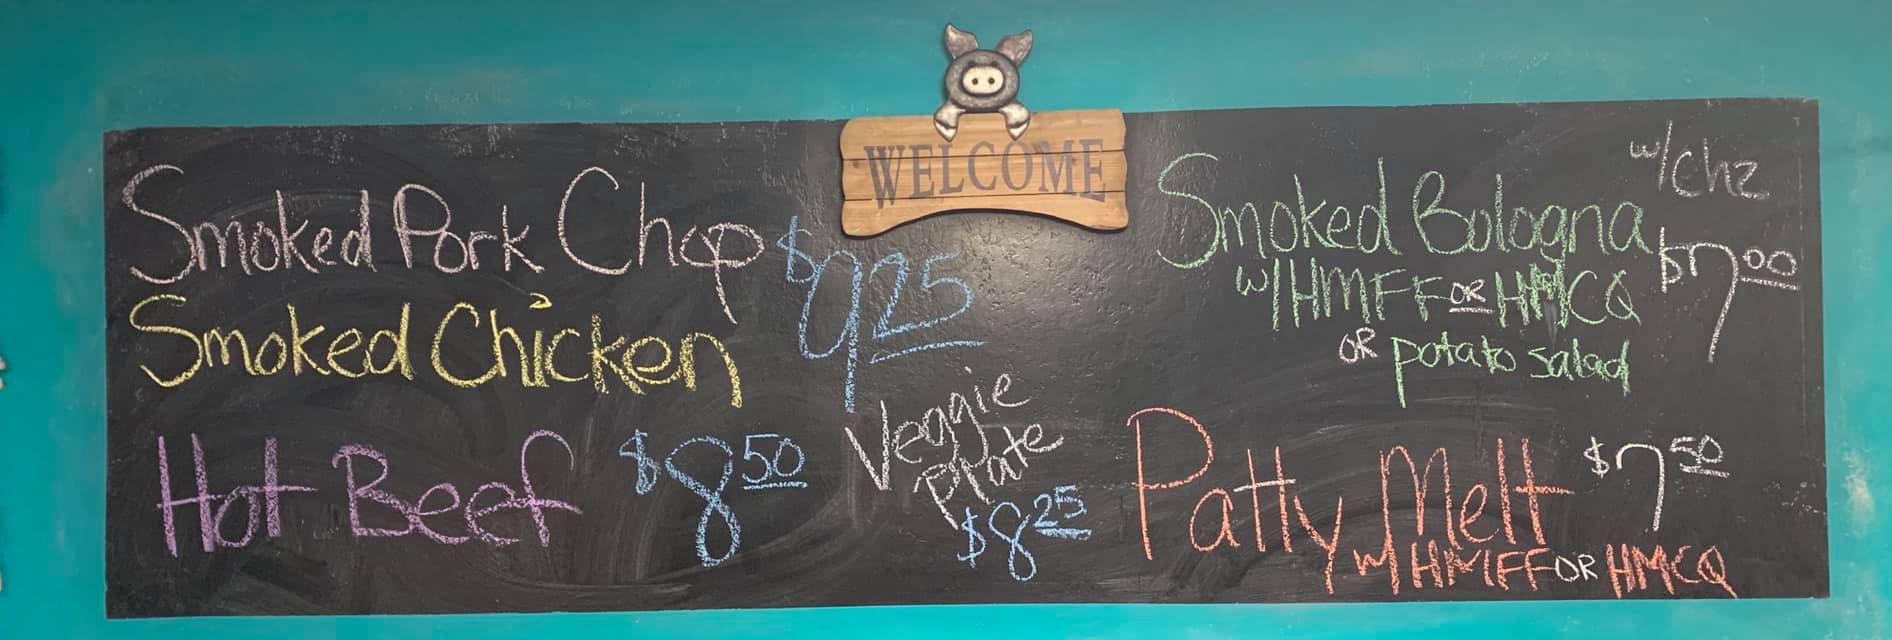 WELCOME
Smoked Pork Chop
Smoked Chicken
$9.25
Hot Beef $8.50
Veggie
Plate
$8.25
Smoked Bologna w/chz
w/HMFF OR HMCQ $7.00
OR potato salad
Patty Melt $7.50
w/HMFF OR HMCQ